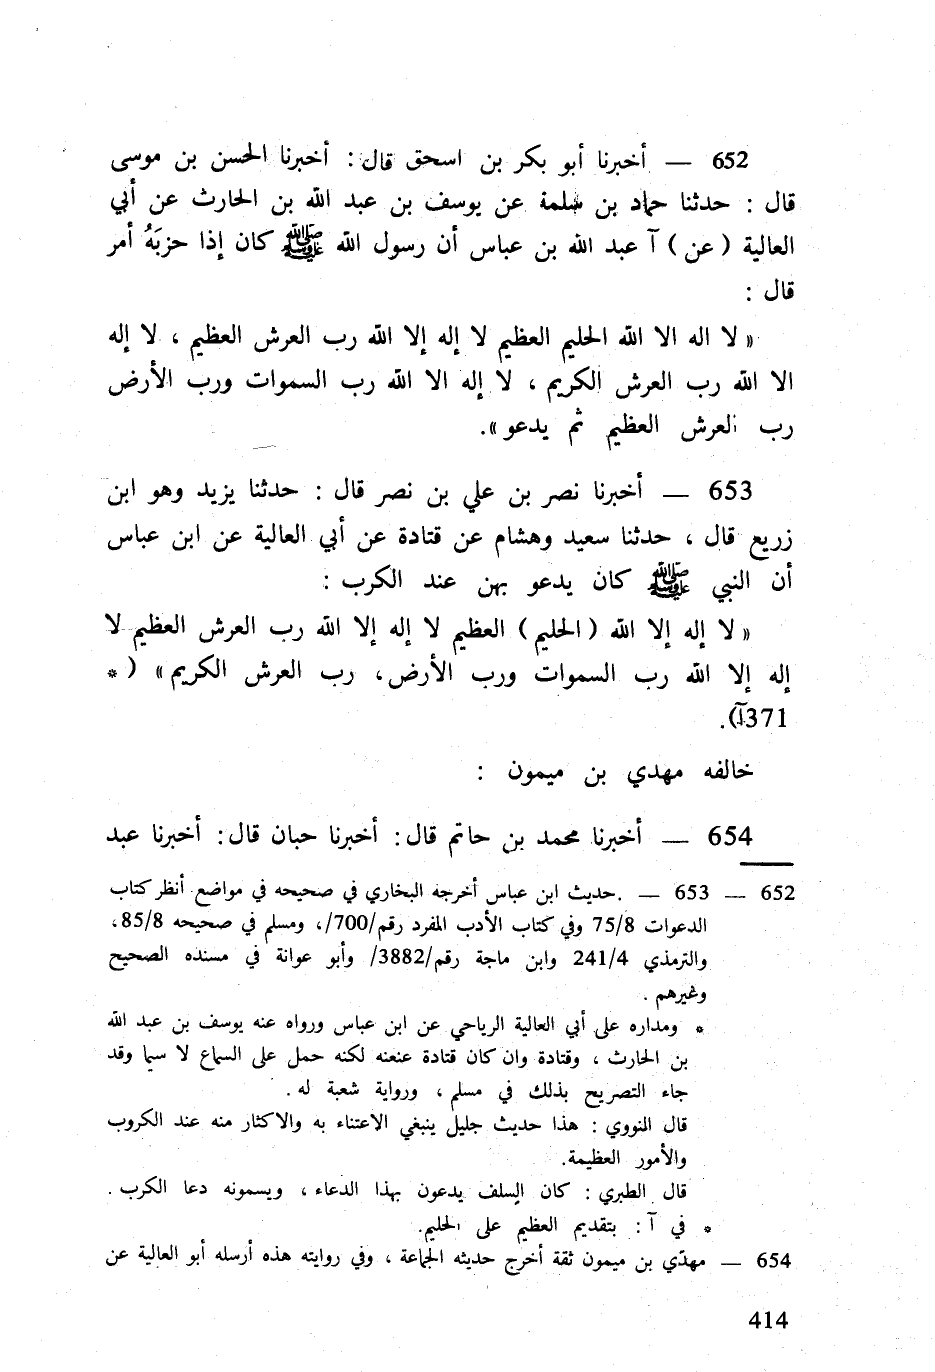 652 — أخبرنا أبو بكر بن اسحق قال : أخبرنا الحسن بن موسى
قال : حدثنا حماد بن سلمة عن يوسف بن عبد الله بن الحارث عن أبي
العالية ( عن ) آ عبد الله بن عباس أن رسول الله ﷺ كان إذا حزبَهُ أمر
قال :
« لا اله الا الله الحليم العظيم لا إله إلا الله رب العرش العظيم ، لا إله
الا الله رب العرش الكريم ، لا إله الا الله رب السموات ورب الأرض
رب العرش العظيم ثم يدعو ».
653 — أخبرنا نصر بن علي بن نصر قال : حدثنا يزيد وهو ابن
زريع قال ، حدثنا سعيد وهشام عن قتادة عن أبي العالية عن ابن عباس
أن النبي ﷺ كان يدعو بهن عند الكرب :
« لا إله إلا الله ( الحليم ) العظيم لا إله إلا الله رب العرش العظيم لا
إله إلا الله رب السموات ورب الأرض، رب العرش الكريم » ( *
371آ).
خالفه مهدي بن ميمون :
654 — أخبرنا محمد بن حاتم قال: أخبرنا حبان قال: أخبرنا عبد
652 — 653 — .حديث ابن عباس أخرجه البخاري في صحيحه في مواضع أنظر كتاب
الدعوات 75/8 وفي كتاب الأدب المفرد رقم/700/، ومسلم في صحيحه 85/8،
والترمذي 241/4 وابن ماجة رقم/3882/ وأبو عوانة في مسنده الصحيح
وغيرهم .
* ومداره على أبي العالية الرياحي عن ابن عباس ورواه عنه يوسف بن عبد الله
بن الحارث ، وقتادة وان كان قتادة عنعنه لكنه حمل على السماع لا سيما وقد
جاء التصريح بذلك في مسلم ، ورواية شعبة له .
قال النووي : هذا حديث جليل ينبغي الاعتناء به والاكثار منه عند الكروب
والأمور العظيمة.
قال الطبري : كان السلف يدعون بهذا الدعاء ، ويسمونه دعا الكرب .
* في آ : بتقديم العظيم على الحليم.
654 — مهدّي بن ميمون ثقة أخرج حديثه الجماعة ، وفي روايته هذه أرسله أبو العالية عن
414